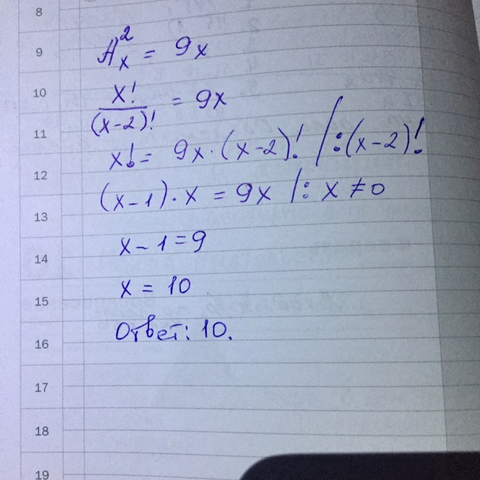 8
9
10
11
12
13
14
15
16
17
18
19
A²ₓ = 9x
x!/(x-2)! = 9x
x! = 9x·(x-2)! /:(x-2)!
(x-1)·x = 9x /: x ≠ 0
x-1=9
x = 10
Ответ: 10.